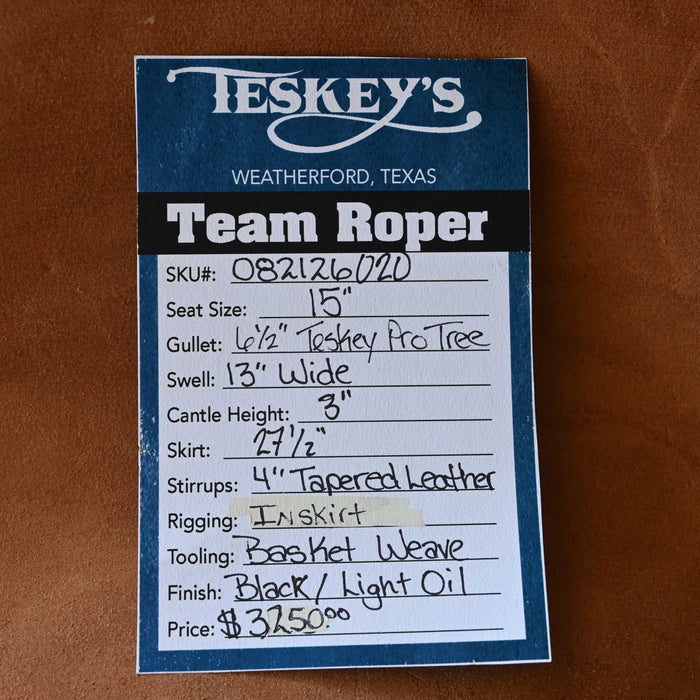 TESKEY'S
WEATHERFORD, TEXAS
Team Roper
SKU#: 082126020
Seat Size: 15"
Gullet: 6½" Teskey Pro Tree
Swell: 13" Wide
Cantle Height: 3"
Skirt: 27½"
Stirrups: 4" Tapered Leather
Rigging: Inskirt
Tooling: Basket Weave
Finish: Black/Light Oil
Price: $3250.00